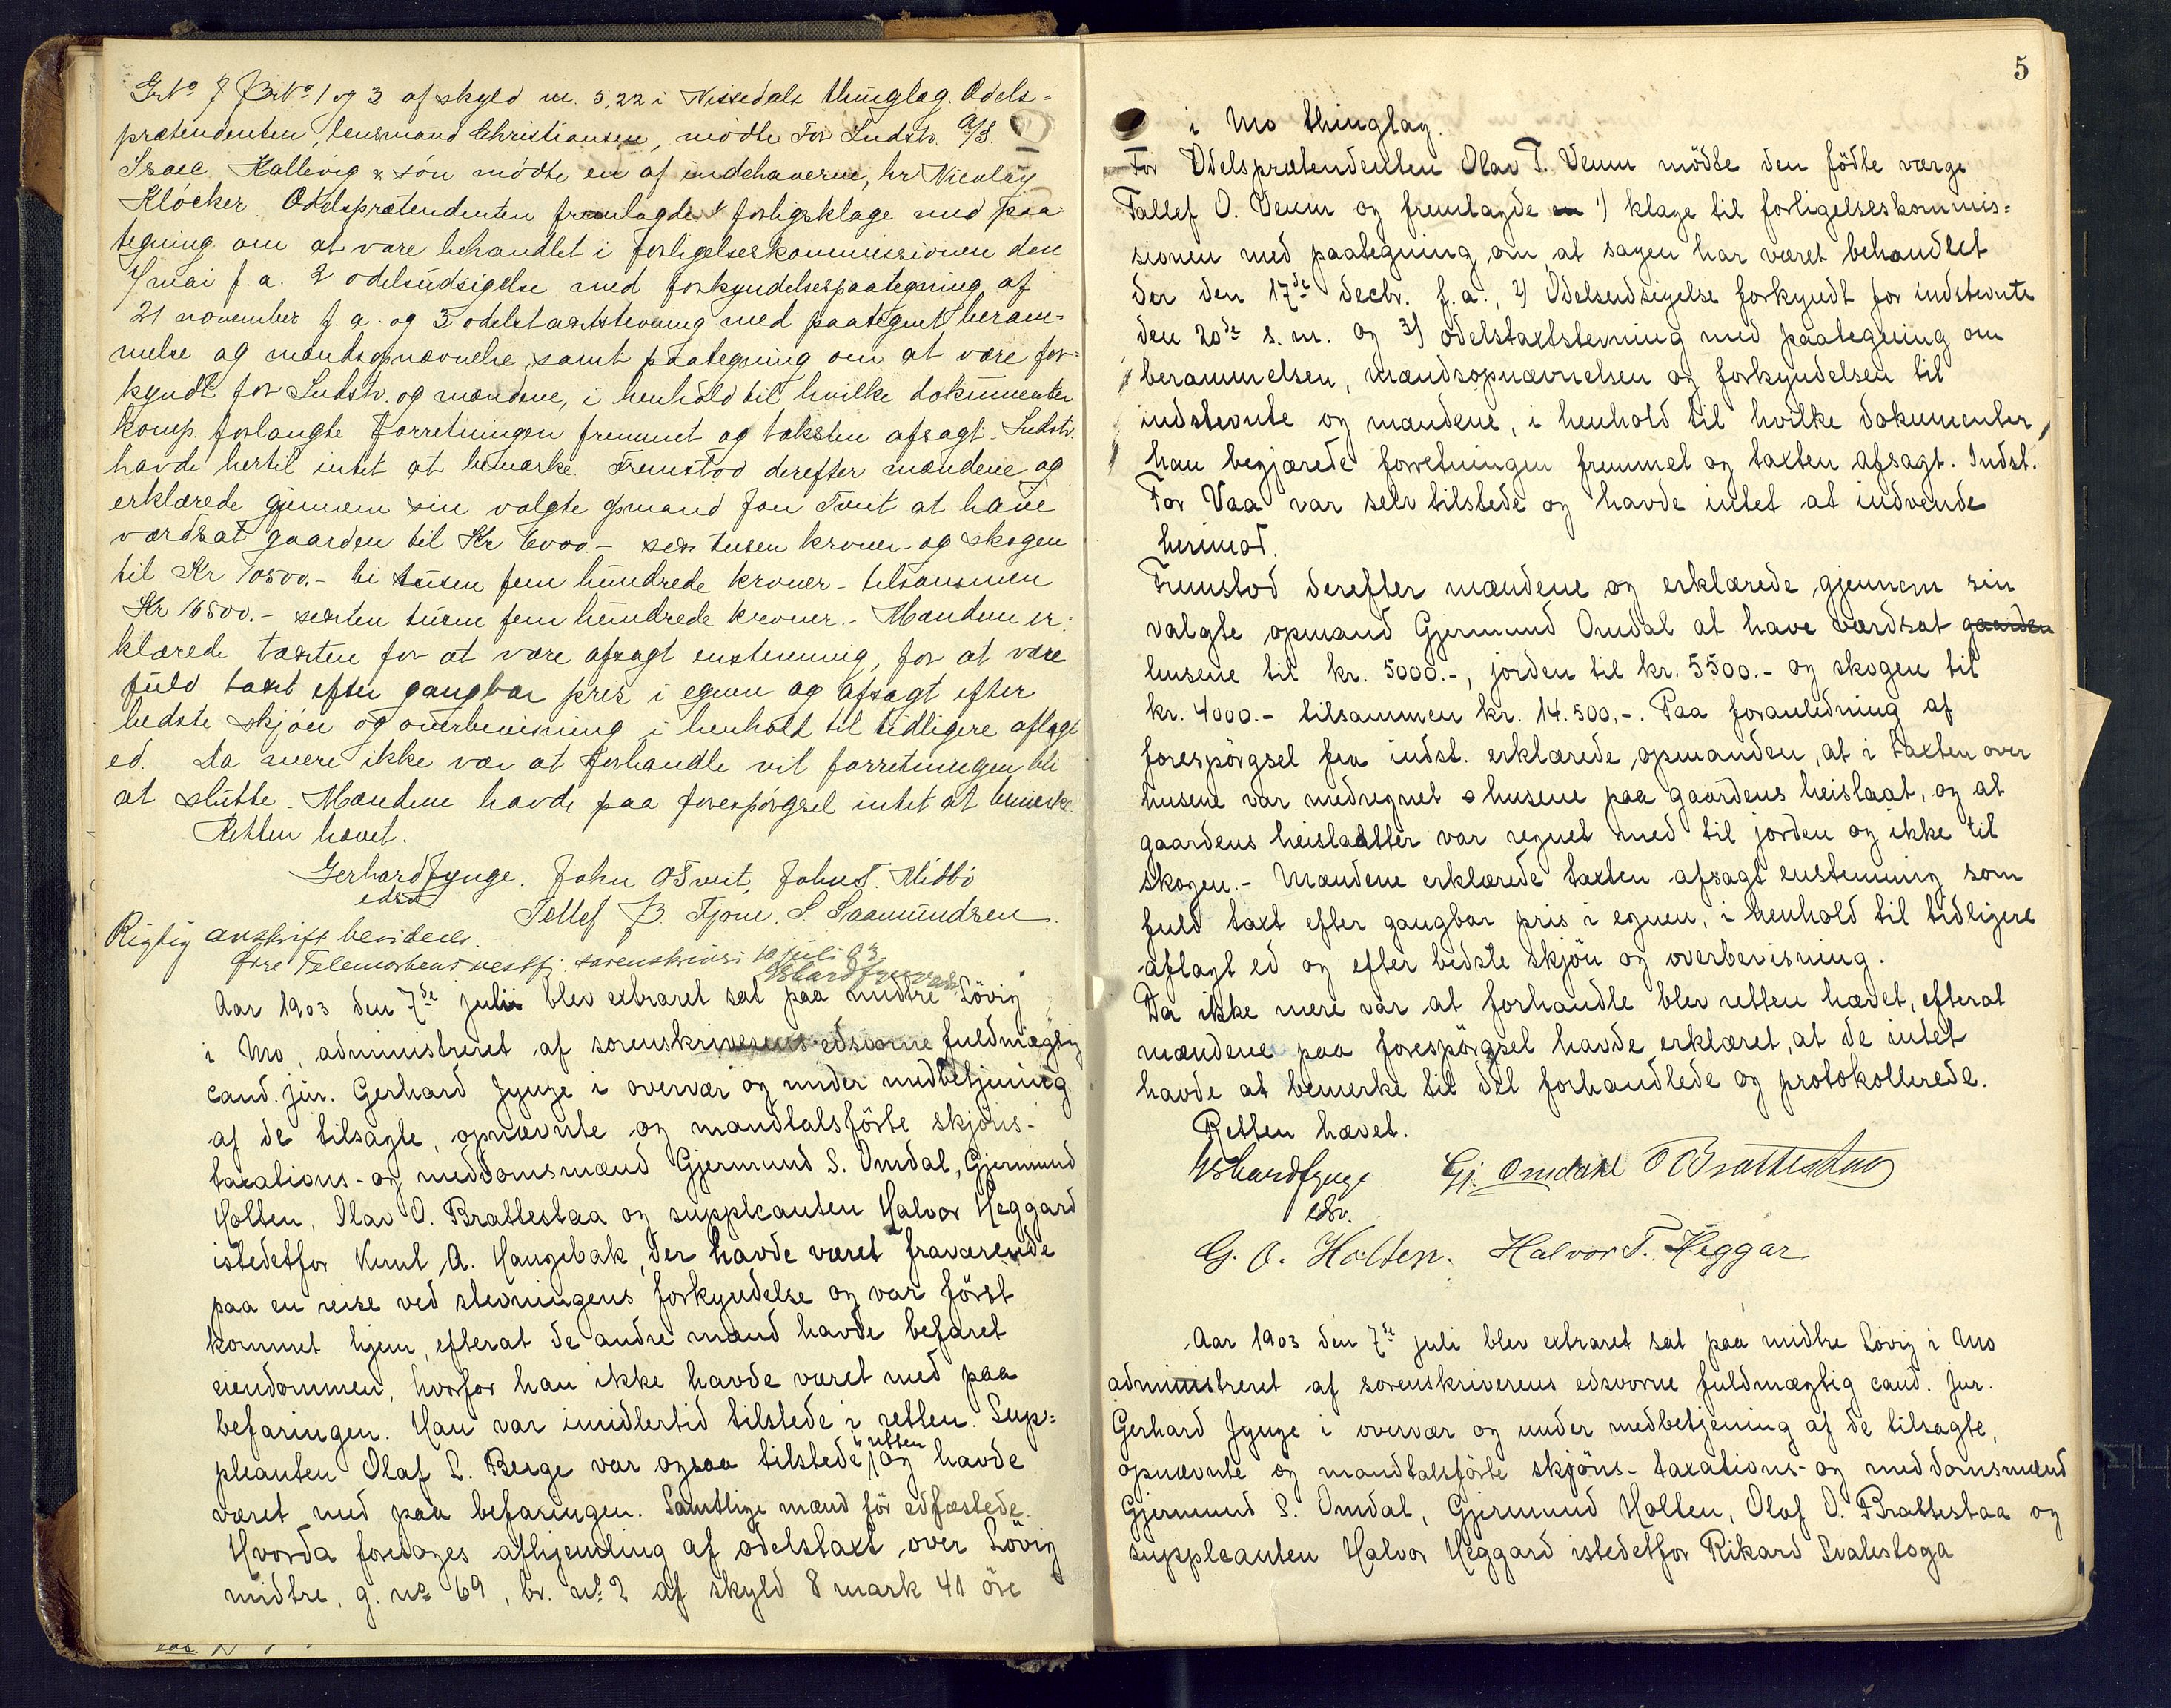 Grno 7 Brno 1 og 3 af skyld m. 5,22 i Nissedals thinglag. Odels-
prætendenten, lensmand Christiansen, mødte For Indstv. A/S.
Isaac Kallevig & søn mødte en af indehaverne, hr Nicolay
Kløcker. Odelsprætendenten fremlagde 1 forligsklage med paa-
tegning om at være behandlet i forligelseskommissionen den
4/mai f. a. 2 odelsudsigelse med forkyndelsespaategning af
21 november f. a. og 3 odelstaxtstevning med paategnet beram-
melse og mændsopnævnelse, samt paategning om at være for-
kyndt for Indstv. og mændene, i henhold til hvilke dokumenter
komp. forlangte forretningen fremmet og taksten afsagt. Indstv.
havde hertil intet at bemærke. Fremstod derefter mændene og
erklærede gjennem sin valgte opmand Jon Tveit at have
værdsat gaarden til Kr 6000.- sex tusen kroner- og skogen
til Kr 10500.- ti tusen fem hundrede kroner - tilsammen
Kr 16500.- sexten tusen fem hundrede kroner.- Mændene er-
klærede taxten for at være afsagt enstemmig, for at være
fuld taxt efter gangbar pris i egnen og afsagt efter
bedste skjøn og overbevisning i henhold til tidligere aflagt
ed. Da mere ikke var at forhandle vil forretningen bli
at slutte. Mændene havde paa forespørgsel intet at bemerke.
Retten hævet.
Gerhard Jynge. John O Tveit, John T. Midbø
edsv
Tellef B Tjønn. S. Saamundsen.
Rigtig avskrift bevidnes.
Øvre Telemarkens vestfj. sorenskriveri 10 juli 03
Aar 1903 den 7de juli blev extraret sat paa midtre Lövig
i Mo, administreret af sorenskriverens edsvorne fuldmægtig
cand. jur. Gerhard Jynge i overvær og under medbetjening
af de tilsagte, opnævnte og mandtalsförte skjöns-
taxations- og meddomsmænd Gjermund S. Omdal, Gjermund
Holten, Olav O. Brattestaa og suppleanten Halvor Heggard
istedetfor Knut A. Haugebak, der havde været fraværende
paa en reise ved stevningens forkyndelse og var först
kommet hjem, efterat de andre mænd havde befaret
eiendommen, hvorfor han ikke havde været med paa
befaringen. Han var imidlertid tilstede i retten. Sup-
pleanten Olaf L. Berge var ogsaa tilstede i retten og havde
været med paa befaringen. Samtlige mænd för edfæstede.
Hvorda foretoges afhjemling af odelstaxt over Lövig
midtre, g. no 69, br. no 2 af skyld 8 mark 41 öre
5
i Mo thinglag.
For Odelsprætendenten Olav T. Veum mödte den födte værge
Tallef O. Veum og fremlagde en 1) klage til forligelseskommis-
sionen med paategning om at sagen har været behandlet
der den 17de decbr. f. a., 2) Odelsudsigelse forkyndt for indstevnte
den 20de s. m. og 3) odelstaxtstevning med paategning om
berammelsen, mændsopnævnelsen og forkyndelsen til
indstevnte og mændene, i henhold til hvilke dokumenter,
han begjærede forretningen fremmet og taxten afsagt. Indst.
Tor Vaa var selv tilstede og havde intet at indvende
herimod.
Fremstod derefter mændene og erklærede gjennem sin
valgte opmand Gjermund Omdal at have værdsat gaarden
husene til kr. 5000.-, jorden til kr. 5500.- og skogen til
kr. 4000.- tilsammen kr. 14.500.-. Paa foranledning af
forespörgsel fra indst. erklærede opmanden, at i taxten over
husene var medregnet husene paa gaardens heislaat, og at
gaardens heislaatter var regnet med til jorden og ikke til
skogen.- Mændene erklærede taxten afsagt enstemmig som
fuld taxt efter gangbar pris i egnen, i henhold til tidligere
aflagt ed og efter bedste skjön og overbevisning.
Da ikke mere var at forhandle blev retten hævet, efterat
mændene paa forespörgsel havde erklæret, at de intet
havde at bemerke til det forhandlede og protokollerede.
Retten hævet.
Gerhard Jynge Gj. Omdahl O Brattestaa
edsv.
G. O. Holten. Halvor T. Heggar
Aar 1903 den 7de juli blev extraret sat paa midtre Lövig i Mo
administreret af sorenskriverens edsvorne fuldmægtig cand. jur.
Gerhard Jynge i overvær og under medbetjening af de tilsagte,
opnævnte og mandtalsförte skjöns- taxations- og meddomsmænd
Gjermund S. Omdal, Gjermund Holten, Olaf O. Brattestaa og
suppleanten Halvor Heggard istedetfor Rikard Svalestoga